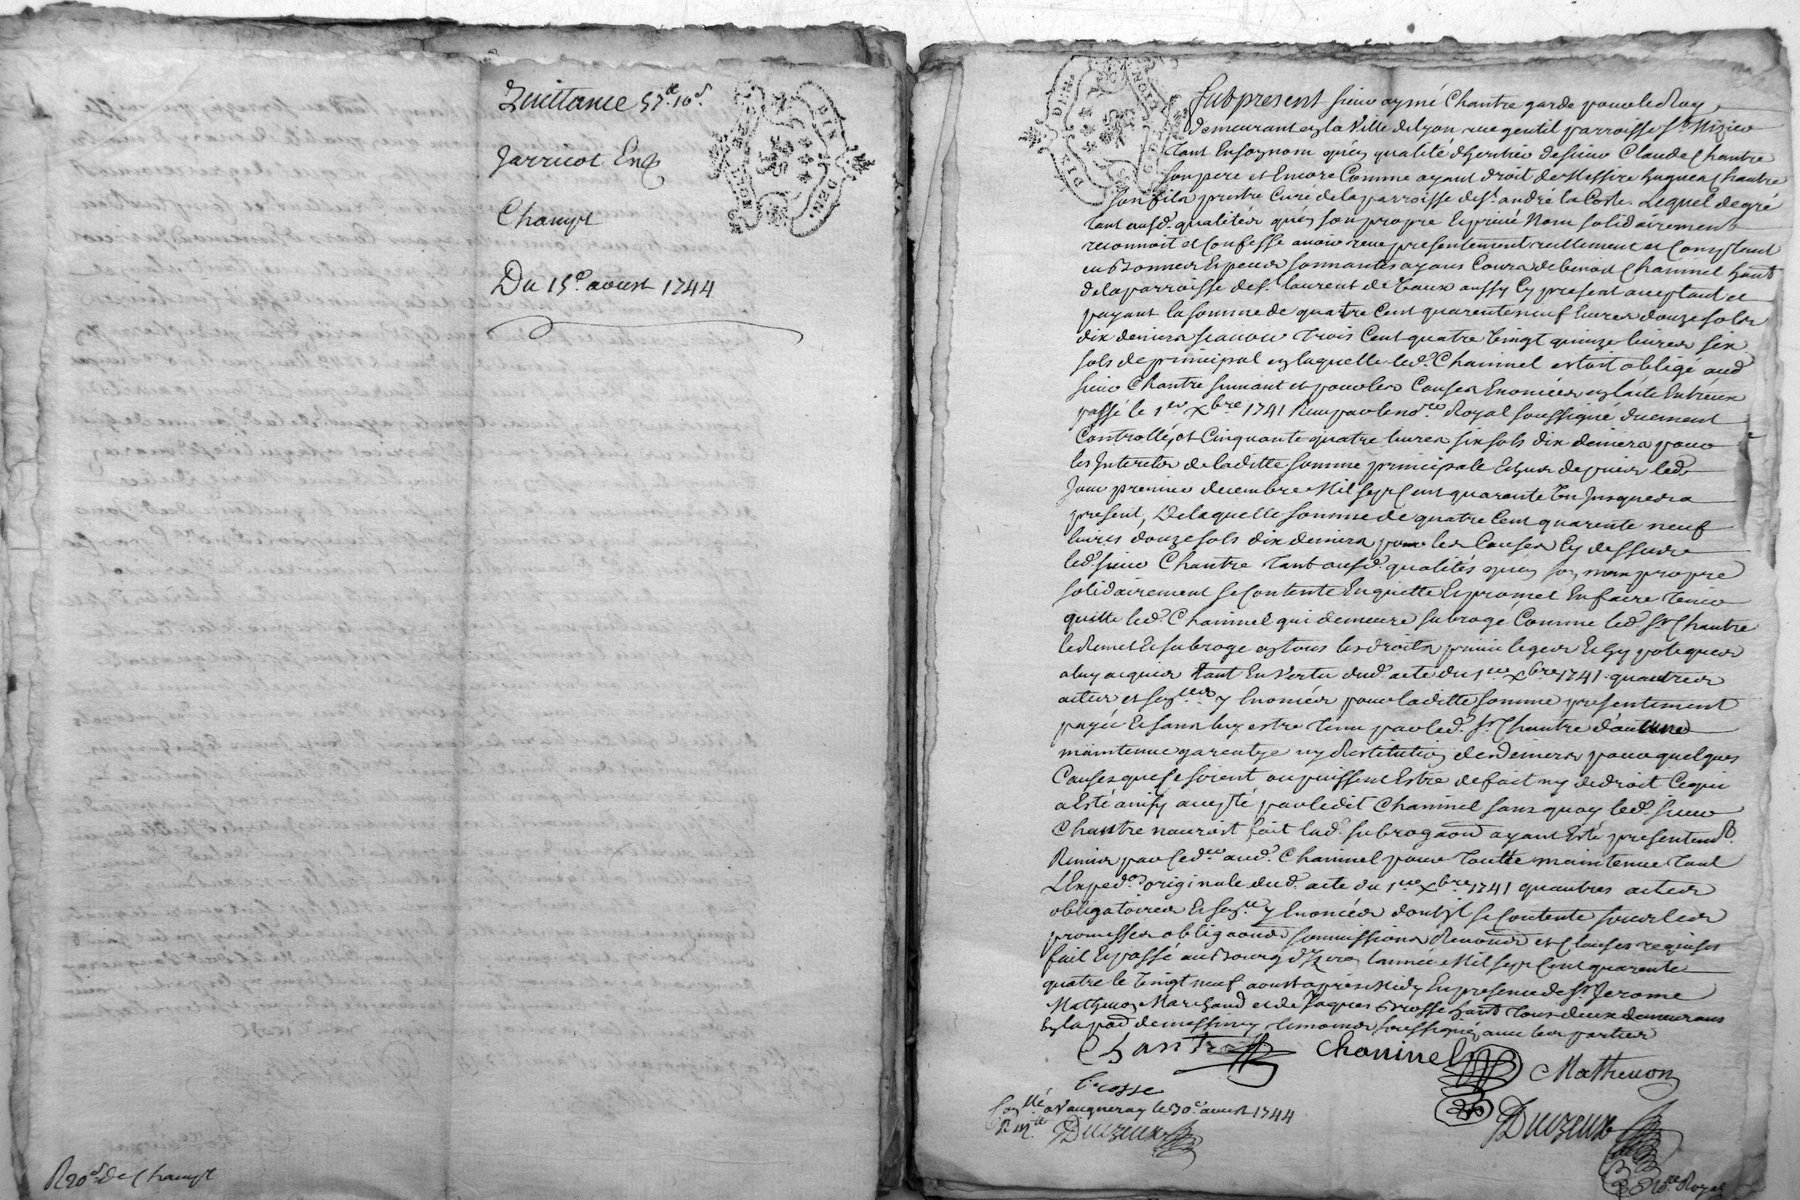 Quittance 57# 10s
Jarricot Ent
Champt
Du 15e aoust 1744
R 20s De Champt
DIX DEN.
DIX DEN.
LYON
Fut present sieur aymé Chantre garde pour le Roy
demeurant en la Ville de Lyon rue gentil parroisse St. Nizier
tant En son nom qu'en qualité d'heritier de sieur Claude Chantre
son pere et Encore Comme ayant droit de Messire hugues Chantre
son fils pretre Curé de la parroisse de St. andré la Coste. Lequel de gré
tant ausd. qualités qu'en son propre Et privé Nom solidairement
reconnoit et Confesse avoir receu presentement reellement et Comptant
en Bonnes Especes sonnantes ayans Cours de benoit Chaninel habt.
de la parroisse de St. laurent de Vaux aussy Cy present acceptant et
payant la somme de quatre Cent quarente neuf livres douze sols
dix deniers scavoir trois Cent quatre Vingt quinze livres six
sols de principal en laquelle led. Chaninel estoit obligé aud.
sieur Chantre suivant et pour les Causes Enoncées en l'acte Entreux
passé le 1er Xbre 1741 Receu par le nore Royal soussigné duement
Controllé, et Cinquante quatre livres six sols dix deniers pour
les Interets de laditte somme principale Echus depuis led.
Jour premier decembre Mil sept Cent quarante Un Jusques a
present, De laquelle somme de quatre Cent quarente neuf
livres douze sols dix deniers pour les Causes Cy dessus
led. sieur Chantre tant ausd. qualités qu'en son nom propre
solidairement se Contente En quitte Et promet En faire tenir
quitte led. Chaninel qui demeure subrogé Comme led. Sr. Chantre
le Remet Et subroge en tous les droits privileges Et hypoteques
a luy acquis tant En Vertu dud. acte du 1er Xbre 1741 qu'autres
actes et y Enoncés pour laditte somme presentement
payée Et sans luy estre tenu par led. Sr. Chantre d'aucune
maintenue garentye ny Restitution de deniers pour quelques
Causes que se soient ou puissent Estre de fait ny de droit Ce qui
a Esté ainsy accepté par ledit Chaninel sans quoy led. sieur
Chantre nauroit fait lad. subrogaon ayant Esté presentemt.
Remis par led. aud. Chaninel pour toutte maintenue tant
L'Expedon originale dud. acte du 1er Xbre 1741 qu'autres actes
obligatoires Et y Enoncés dont il se Contente sous les
promesses obligaons soumissions Renonons et Clauses requises
fait Et passé au Bourg d'Izeron l'année Mil sept Cent quarente
quatre le Vingt neuf aoust apres Midy En presence de Sr. Jerome
Mathevon Marchand et de Jaques Crosse habt. tous deux demeurans
En la pard. de messimy temoins soussignés avec les parties
Chantre Chaninel Mathevon
Crosse
Conllé a Vaugneray le 30e aoust 1744
Duizeux
Duizeux
Nore Royal